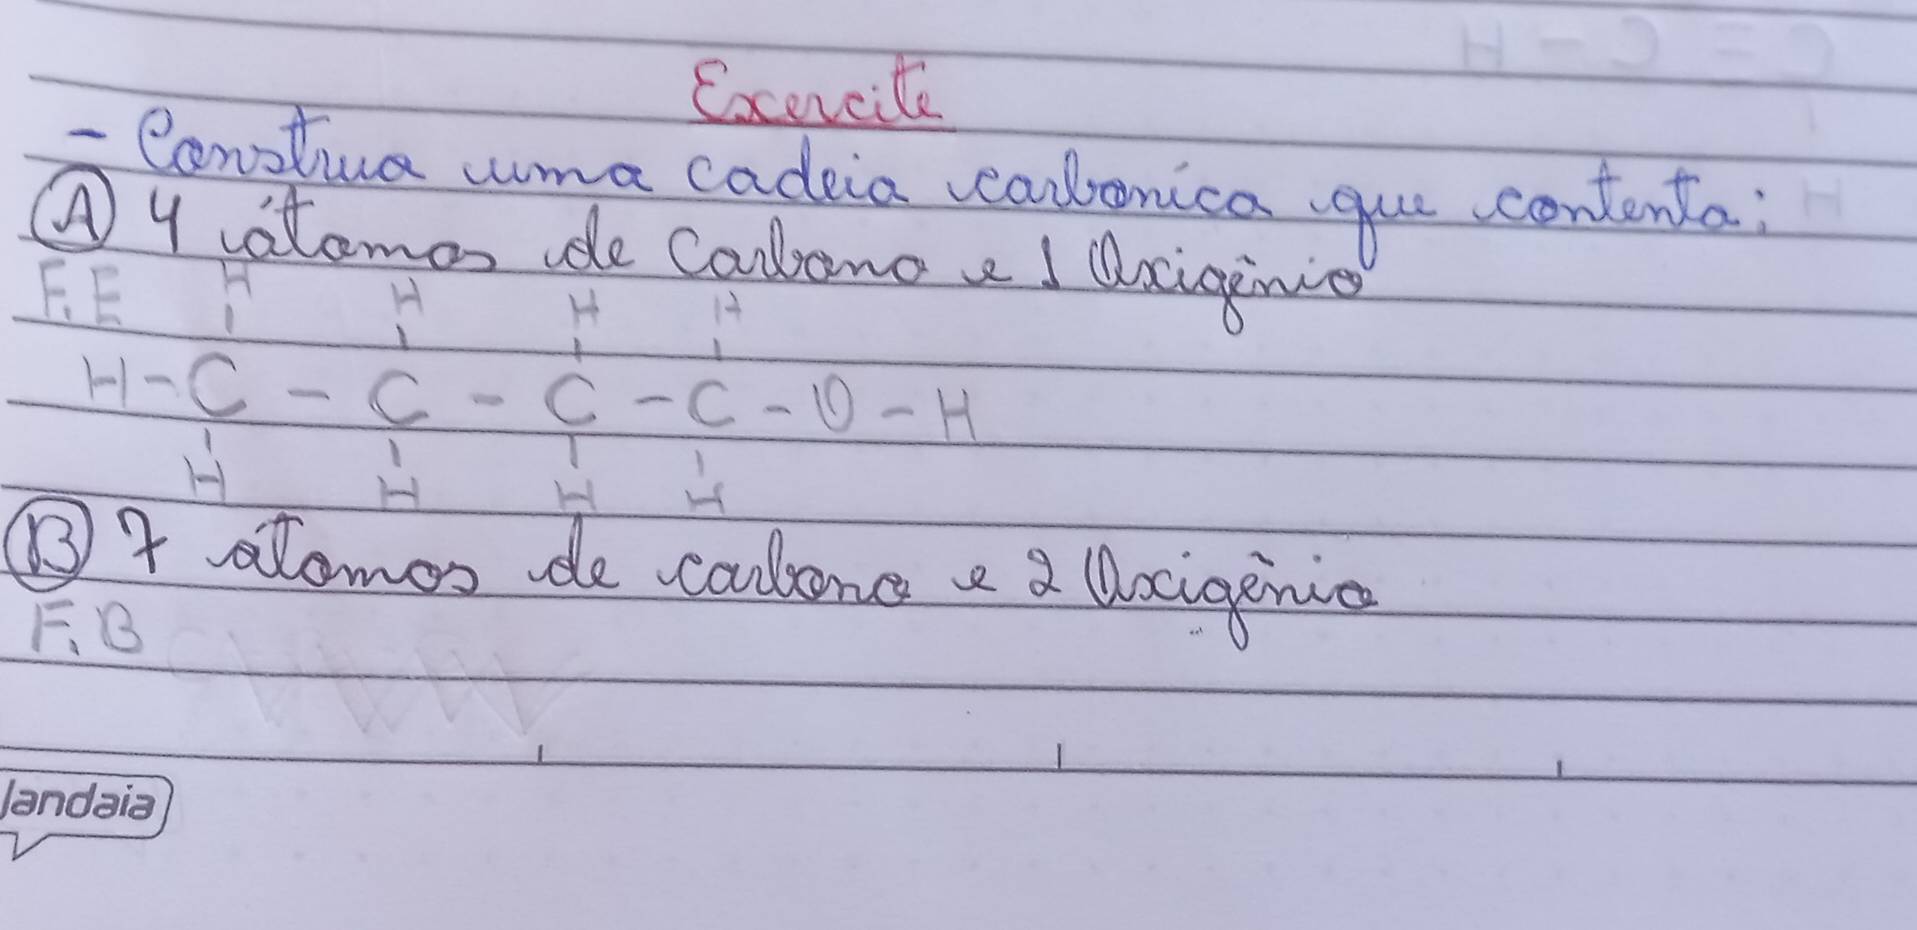 Exercite
- Construa uma cadeia carbonica que contenta:
A 4 átomos de Carbono e 1 Oxigênio
F.E H H H H
H-C-C-C-C-O-H
H H H H
B 7 atomos de carbono e 2 Oxigênio
F.B
Jandaia